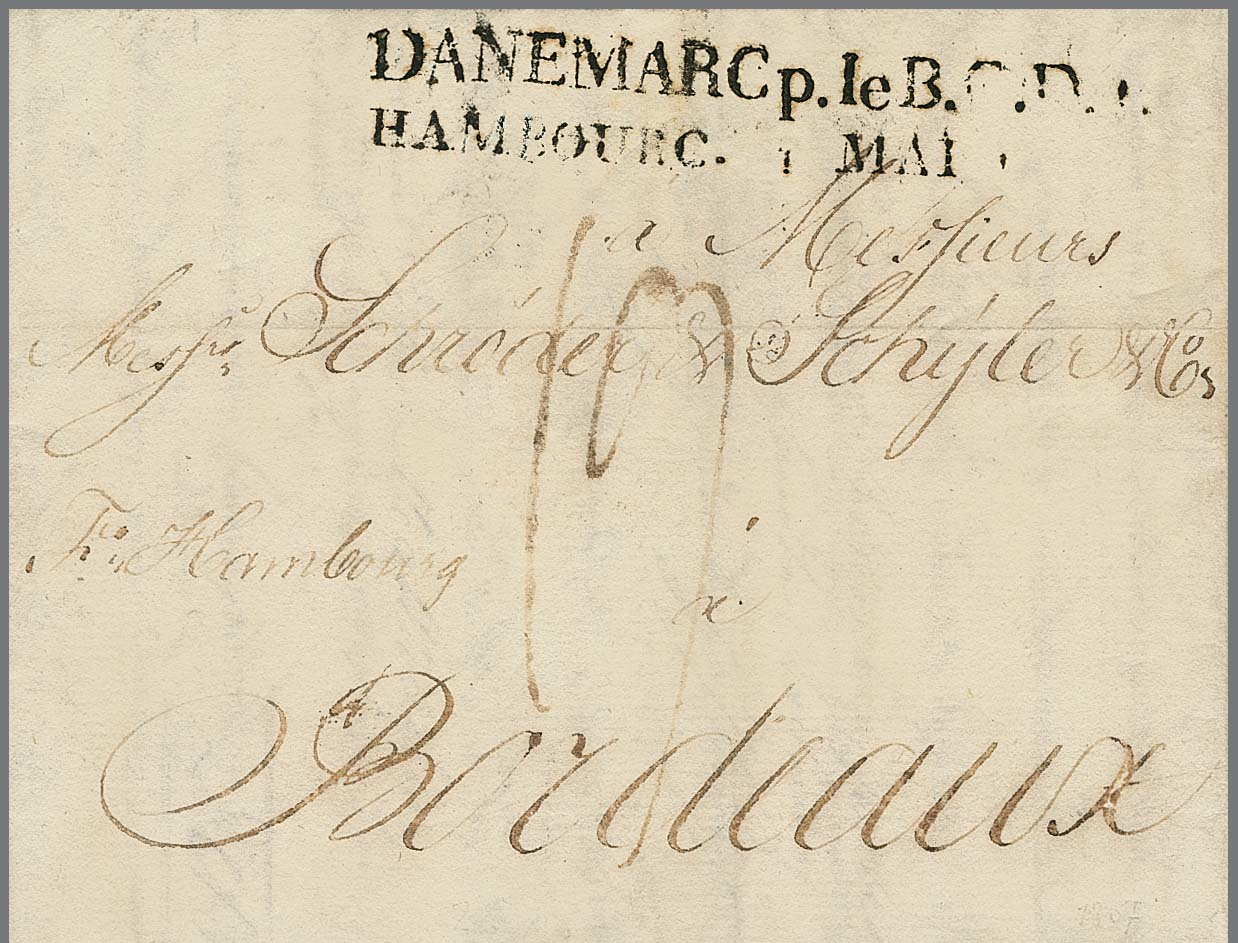 DANEMARC p. le B. G. D.
HAMBOURG. MAI
a Messieurs
Messrs Schröder & Schÿler & Co
19
Fco Hambourg
à
Bordeaux